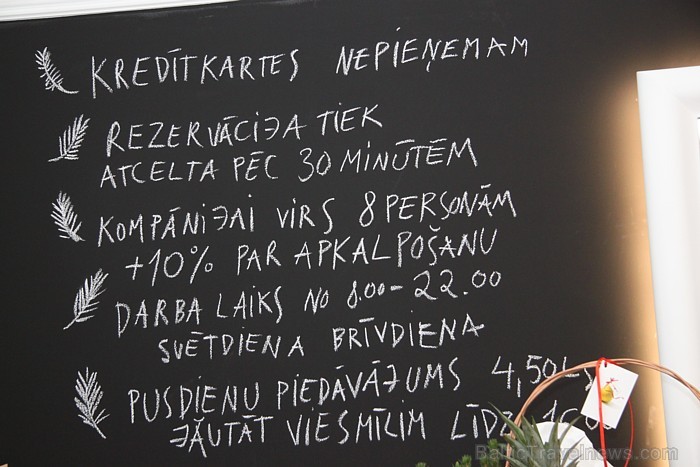 KREDĪTKARTES NEPIEŅEMAM
REZERVĀCIJA TIEK
ATCELTA PĒC 30 MINŪTĒM
KOMPĀNIJAI VIRS 8 PERSONĀM
+10% PAR APKALPOŠANU
DARBA LAIKS NO 8.00-22.00
SVĒTDIENA BRĪVDIENA
PUSDIENU PIEDĀVĀJUMS 4,50
JĀUTĀT VIESMĪLIM LĪDZ
BalticTravelnews.com